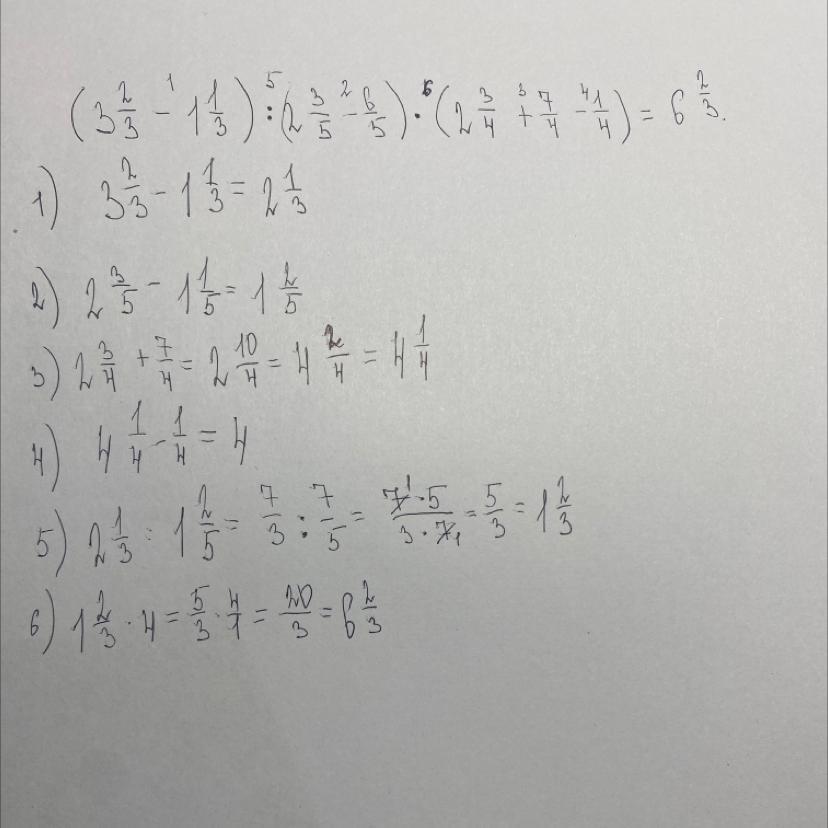 (3 2/3 - 1 1/3) : (2 3/5 - 6/5) · (2 3/4 + 7/4 - 1/4) = 6 2/3.
1) 3 2/3 - 1 1/3 = 2 1/3
2) 2 3/5 - 1 1/5 = 1 2/5
3) 2 3/4 + 7/4 = 2 10/4 = 4 2/4 = 4 1/4
4) 4 1/4 - 1/4 = 4
5) 2 1/3 : 1 2/5 = 7/3 : 7/5 = 7 · 5/3 · 7 = 5/3 = 1 2/3
6) 1 2/3 · 4 = 5/3 · 4/1 = 20/3 = 6 2/3